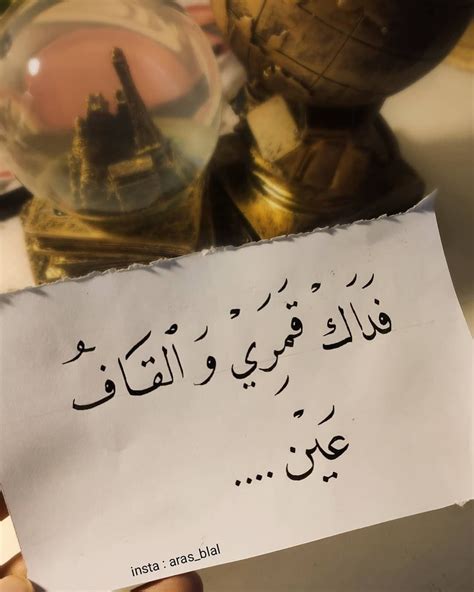 فَدَاكْ قَمَرِيْ وَ الْقَافُ
عَيْنْ ....
insta : aras_blal